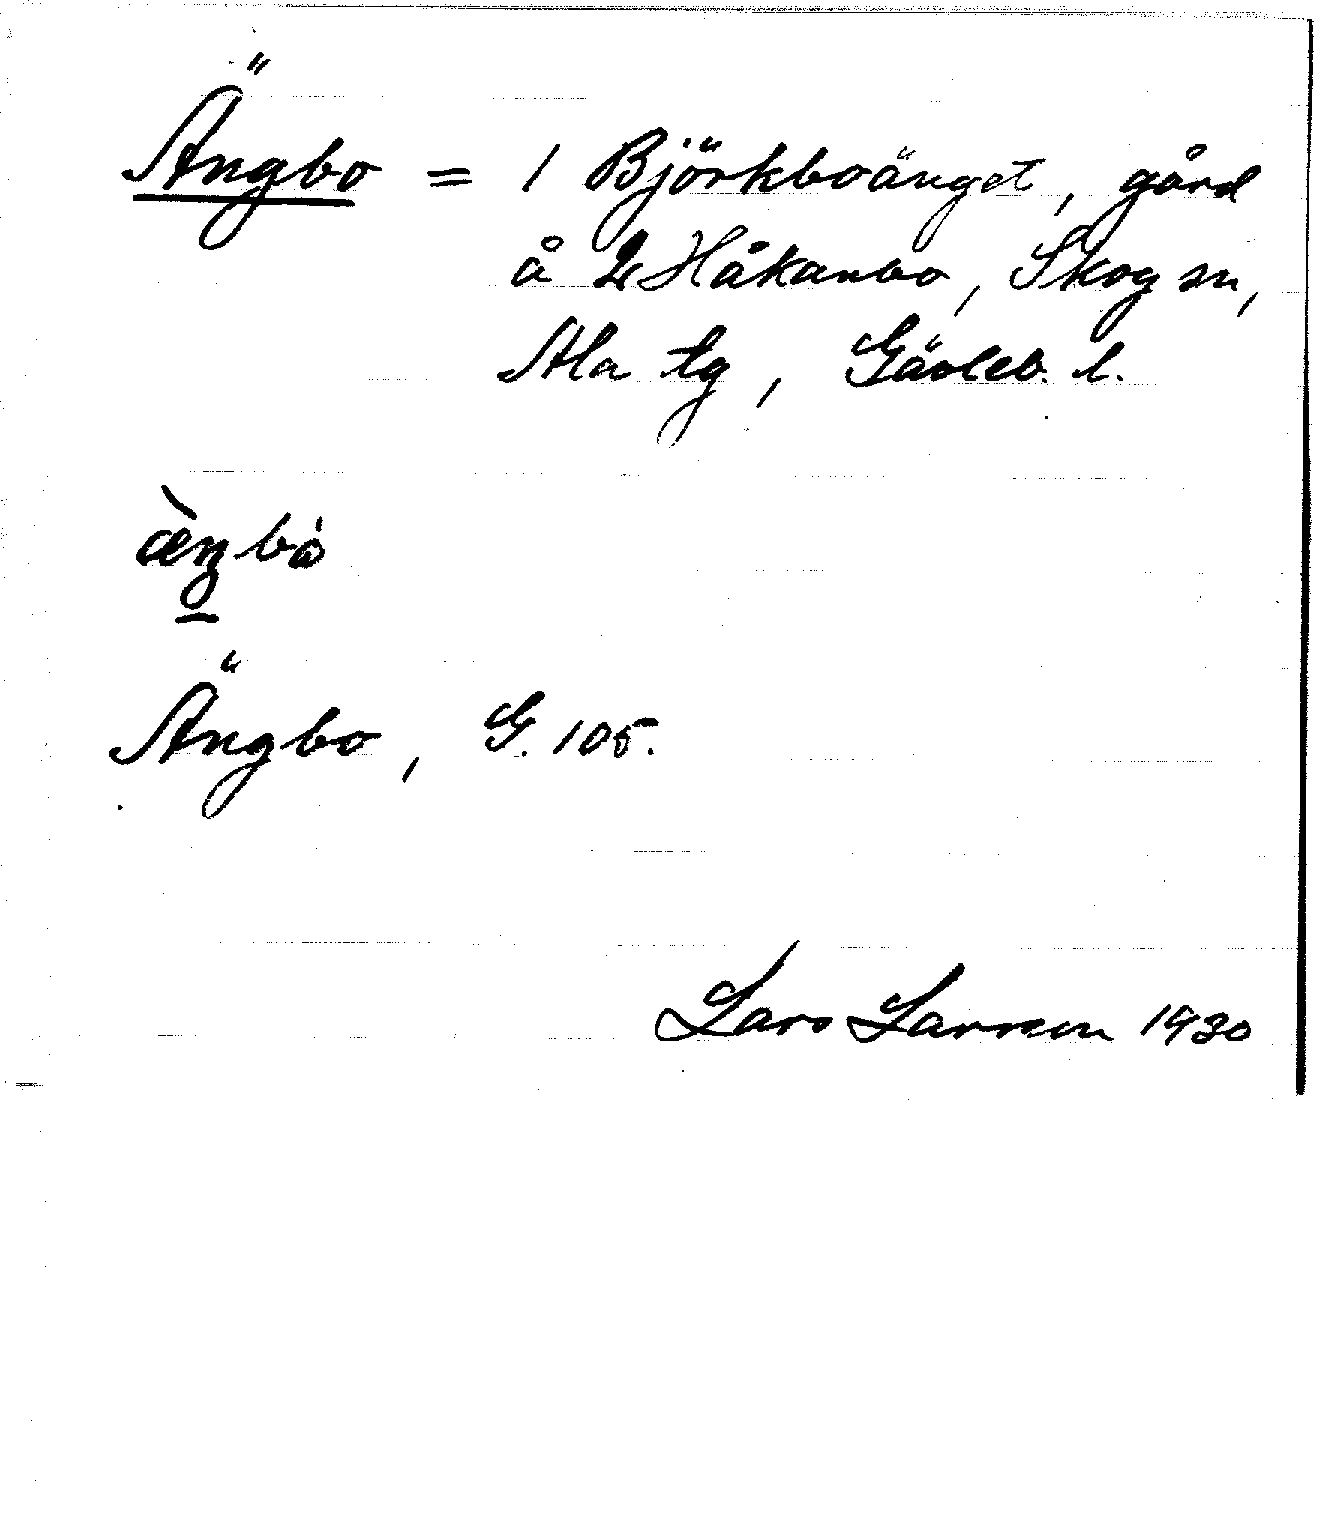 Ängbo = 1 Björkboänget, gård
å 2 Håkanbo, Skog sn,
Ala tg, Gävleb. l.
Ängbo, G. 105.
Lars Larsson 1930